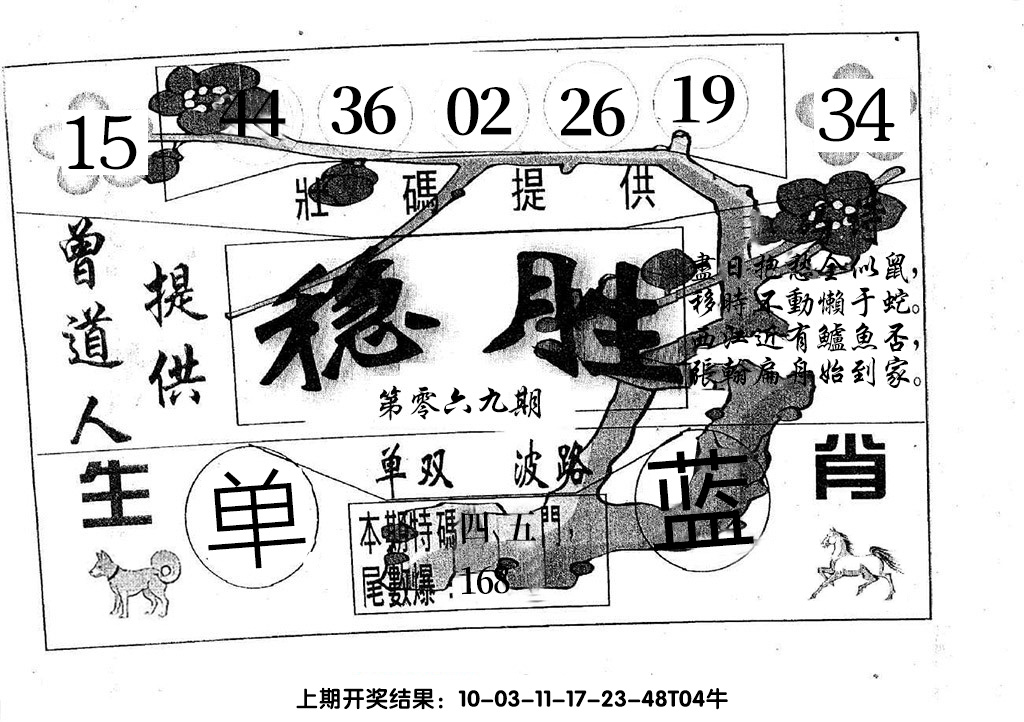 15 44 36 02 26 19 34
壯碼提供
曾道人
提供
稳胜
第零六九期
盡日抱愁全似鼠，
移時不動懶于蛇。
西江近有鱸魚否，
張翰扁舟始到家。
单双 波路
生
肖
单
蓝
本期特碼四、五門，
尾數爆：168
上期开奖结果：10-03-11-17-23-48T04牛